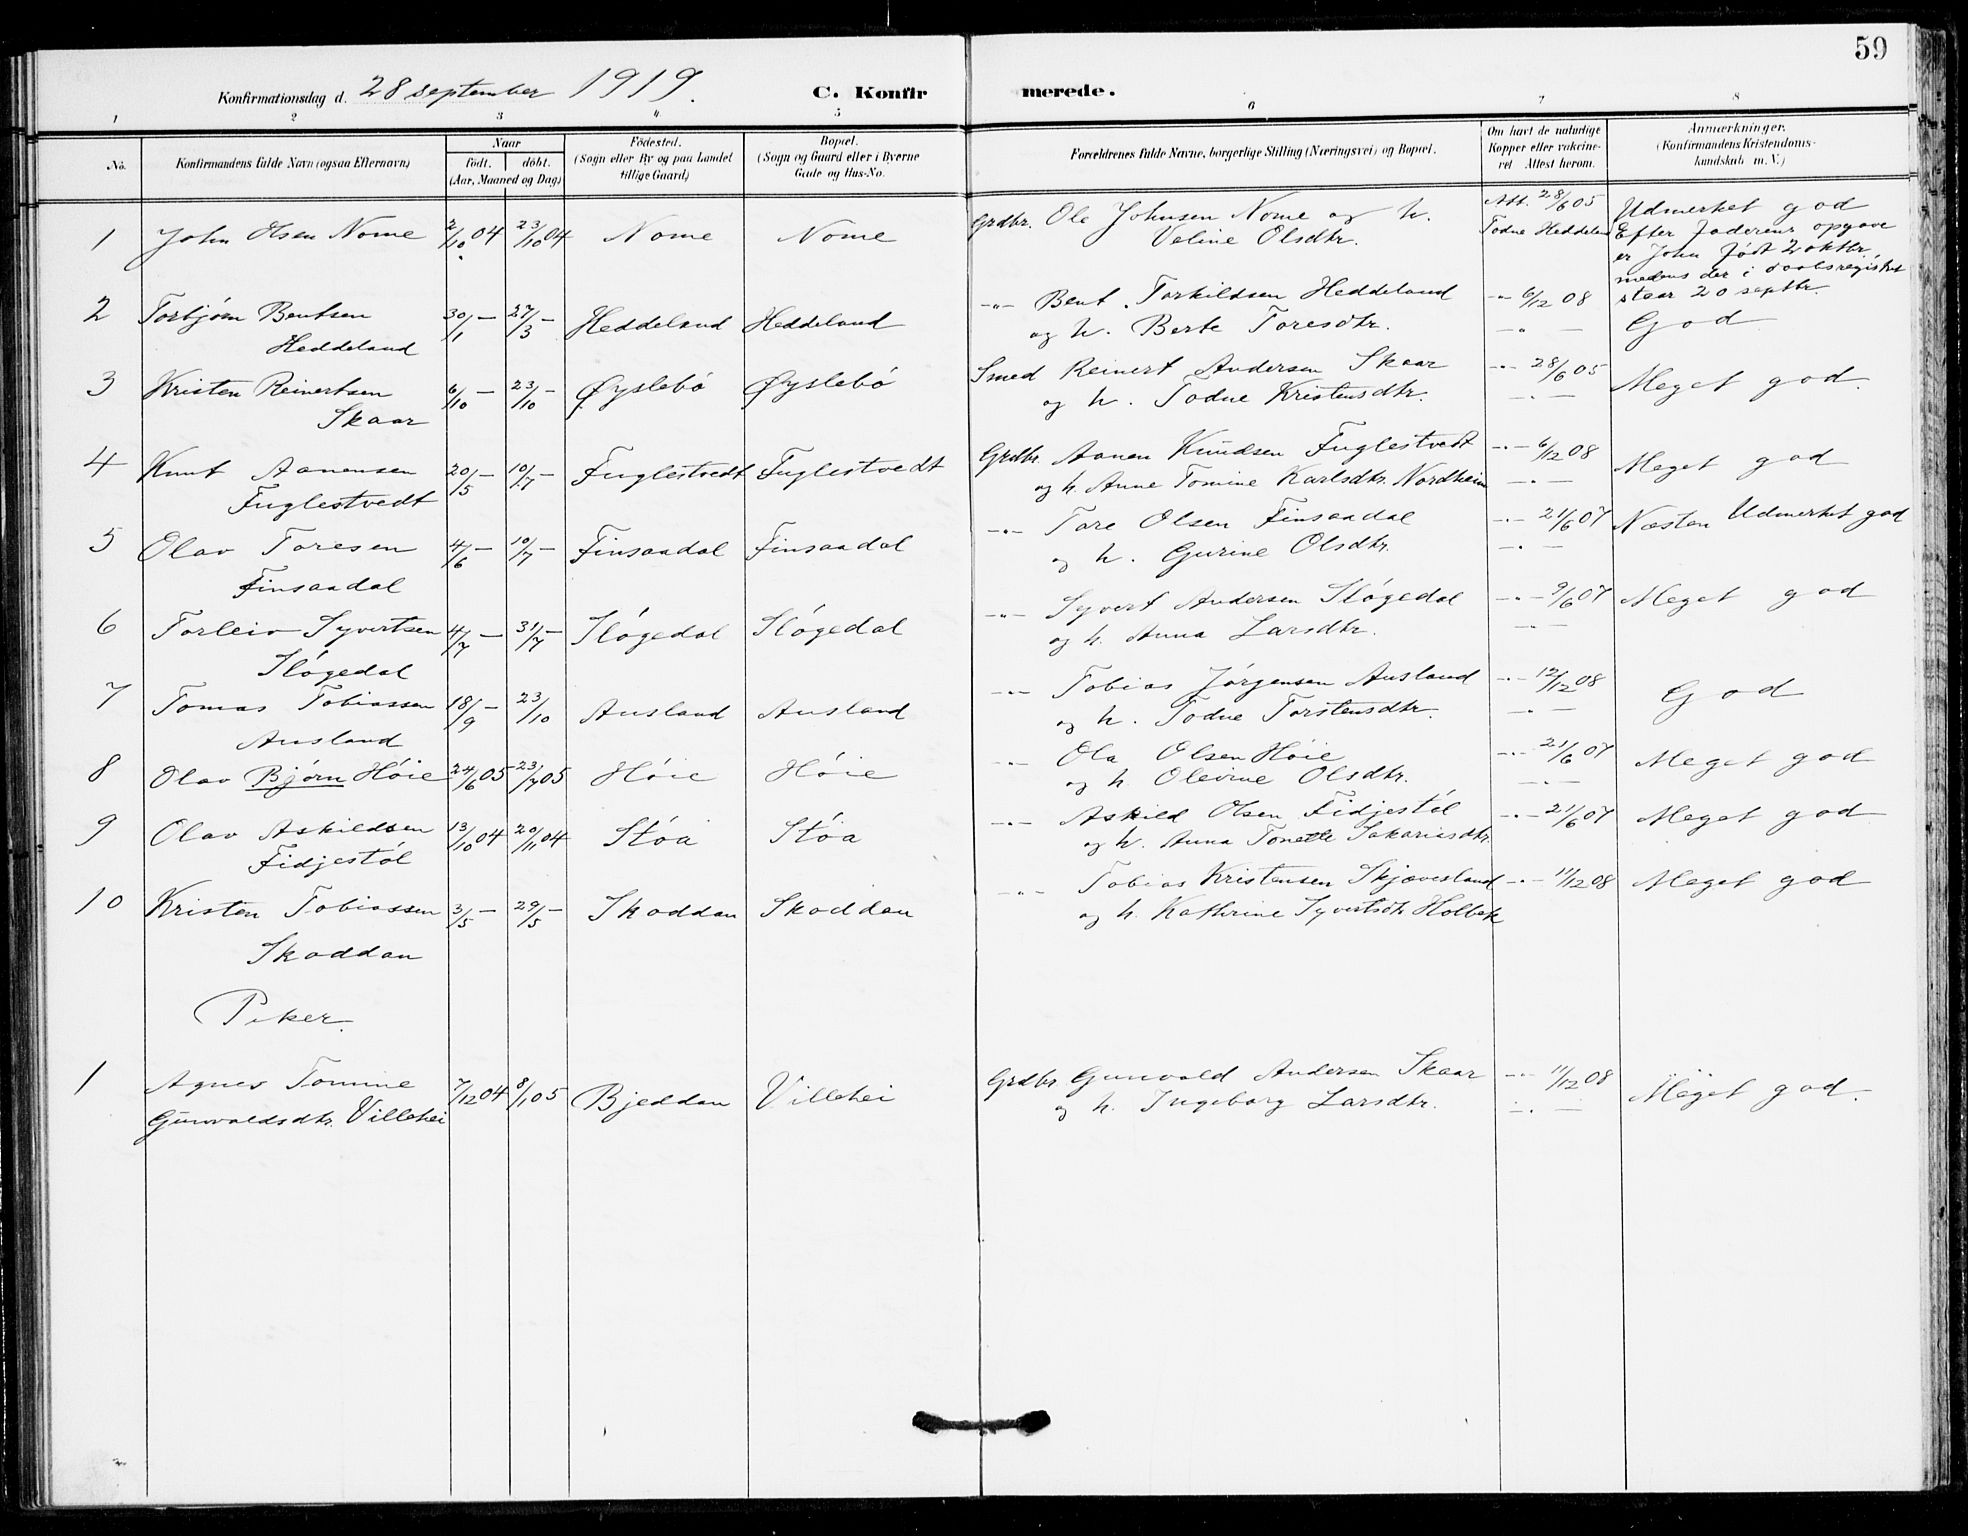 59
Konfirmationsdag d. 28 september 1919. C. Konfirmerede.
1 2 3 4 5 6 7 8
No. Konfirmandens fulde Navn (ogsaa Efternavn) Naar født. døbt. (Aar, Maaned og Dag) Fødested. (Sogn eller By og paa Landet tillige Gaard) Bopæl. (Sogn og Gaard eller i Byerne Gade og Hus-No. Forældrenes fulde Navne, borgerlige Stilling (Næringsvei) og Bopæl. Om havt de naturlige Kopper eller vakcineret Attest herom. Anmærkninger. (Konfirmandens Kristendomskundskab m. V.)
1 John Olsen Nome 2/10 04 23/10 04 Nome Nome Grdbr. Ole Johnsen Nome og h. Att. 28/6 05 Udmerket god
Valine Olsdtr. Todne Heddeland Efter faderens opgave
er John født 2 oktbr.
medens der i daabsregistret
staar 20 septbr.
2 Torbjørn Bentsen 30/1 — 27/3 — Heddeland Heddeland -"- Bent Torkildsen Heddeland -"- 6/12 08 God
Heddeland og h. Berte Toresdtr. -"- —
3 Kristen Reinertsen 6/10 — 23/10 — Øyslebö Øyslebö Smed Reinert Andersen Skaar -"- 28/6 05 Meget god.
Skaar og h. Todne Kristensdtr. -"- —
4 Knut Aanensen 20/5 — 10/7 — Fuglestvedt Fuglestvedt Grdbr. Aanen Knudsen Fuglestvedt -"- 6/12 08 Meget god
Fuglestvedt og h. Anne Tomine Karlsdtr. Nordheim -"- —
5 Olav Toresen 4/6 — 10/7 — Finsaadal Finsaadal -"- Tore Olsen Finsaadal -"- 21/6 07 Næsten Udmerket god
Finsaadal og h. Gurine Olsdtr. -"- —
6 Torleiv Syvertsen 4/7 — 31/7 — Slögedal Slögedal -"- Syvert Andersen Slögedal -"- 9/6 07 Meget god
Slögedal og h. Anna Larsdtr. -"- —
7 Tomas Tobiassen 18/9 — 23/10 Ausland Ausland -"- Tobias Jörgensen Ausland -"- 12/12 08 God
Ausland og h. Todne Torstensdtr. -"- —
8 Olav Bjørn Höie 24/6 05 23/7 05 Höie Höie -"- Ola Olsen Höie -"- 21/6 07 Meget god
og h. Olevine Olsdtr. -"- —
9 Olav Askildsen 13/10 04 20/11 04 Stöa Stöa -"- Askild Olsen Fidjestöl -"- 21/6 07 Meget god
Fidjestöl og h. Anna Tonette Sakariasdtr.
10 Kristen Tobiassen 3/5 — 29/5 — Skoddan Skoddan -"- Tobias Kristensen Skjævesland -"- 11/12 08 Meget god
Skoddan og h. Kathrine Syvertsdtr Holbek
Piker.
1 Agnes Tomine 7/12 04 8/1 05 Bjeddan Villehei Grdbr Gunvald Andersen Skaar -"- 11/12 08 Meget god.
Gunvaldsdtr. Villehei og h. Ingeborg Larsdtr. -"- —